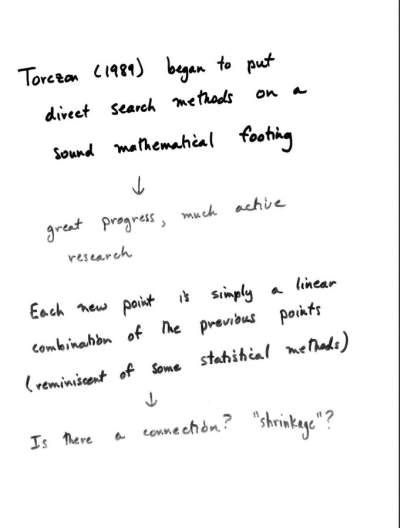 Torczon (1989) began to put
direct search methods on a
sound mathematical footing
↓
great progress, much active
research
Each new point is simply a linear
combination of the previous points
(reminiscent of some statistical methods)
↓
Is there a connection? "shrinkage"?